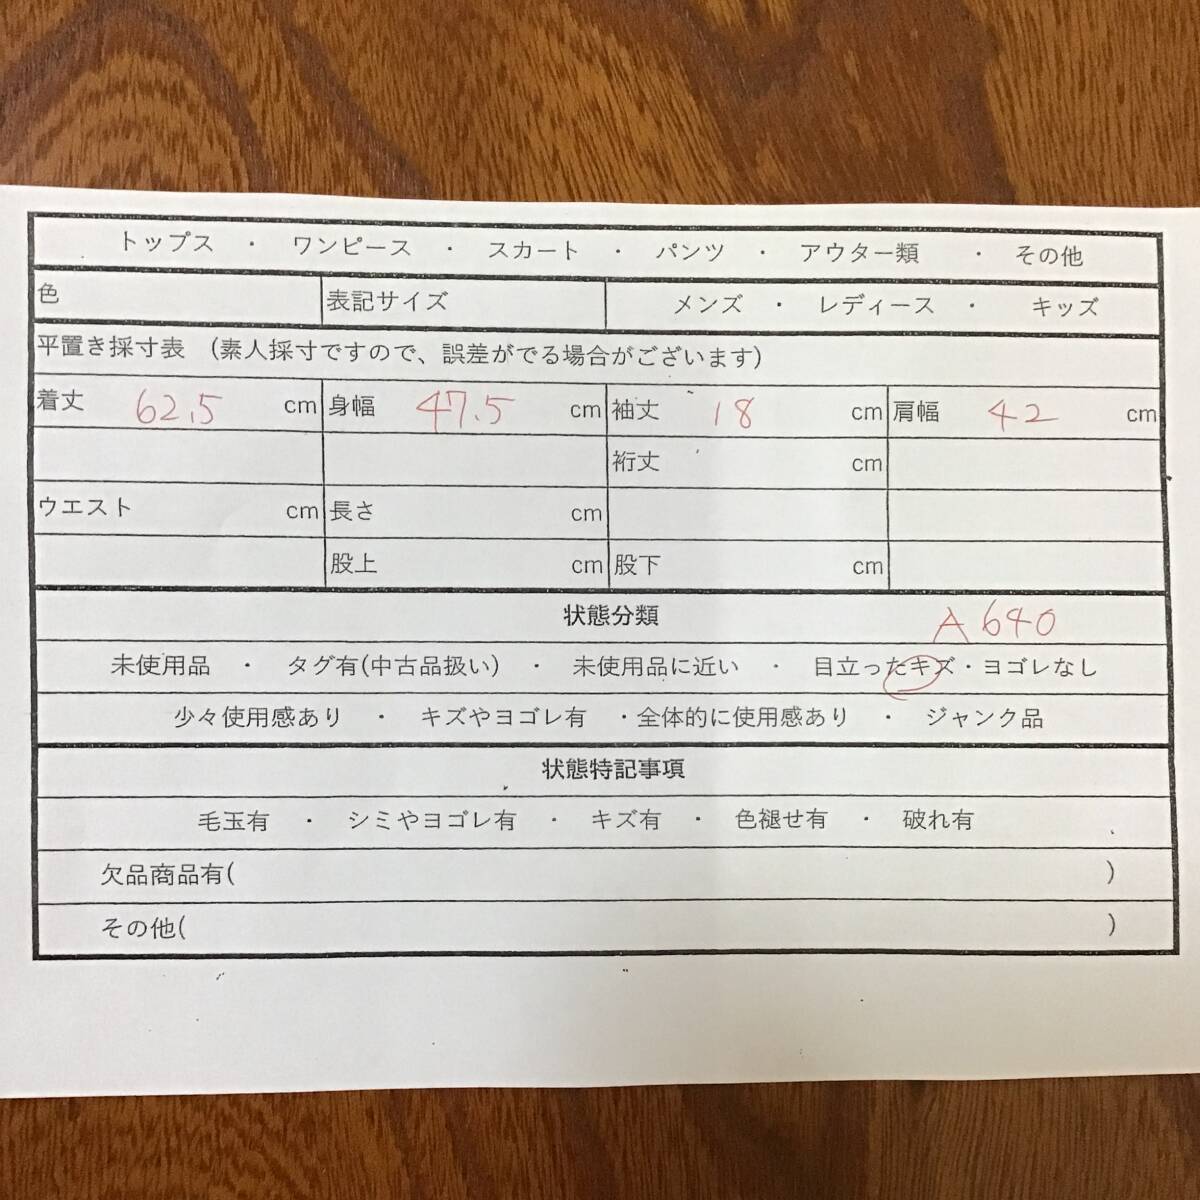 トップス ・ ワンピース ・ スカート ・ パンツ ・ アウター類 ・ その他
色 表記サイズ メンズ ・ レディース ・ キッズ
平置き採寸表 (素人採寸ですので、誤差がでる場合がございます)
着丈 62.5 cm 身幅 47.5 cm 袖丈 18 cm 肩幅 42 cm
裄丈 cm
ウエスト cm 長さ cm
股上 cm 股下 cm
状態分類 A640
未使用品 ・ タグ有(中古品扱い) ・ 未使用品に近い ・ 目立ったキズ・ヨゴレなし
少々使用感あり ・ キズやヨゴレ有 ・全体的に使用感あり ・ ジャンク品
状態特記事項
毛玉有 ・ シミやヨゴレ有 ・ キズ有 ・ 色褪せ有 ・ 破れ有
欠品商品有( )
その他( )